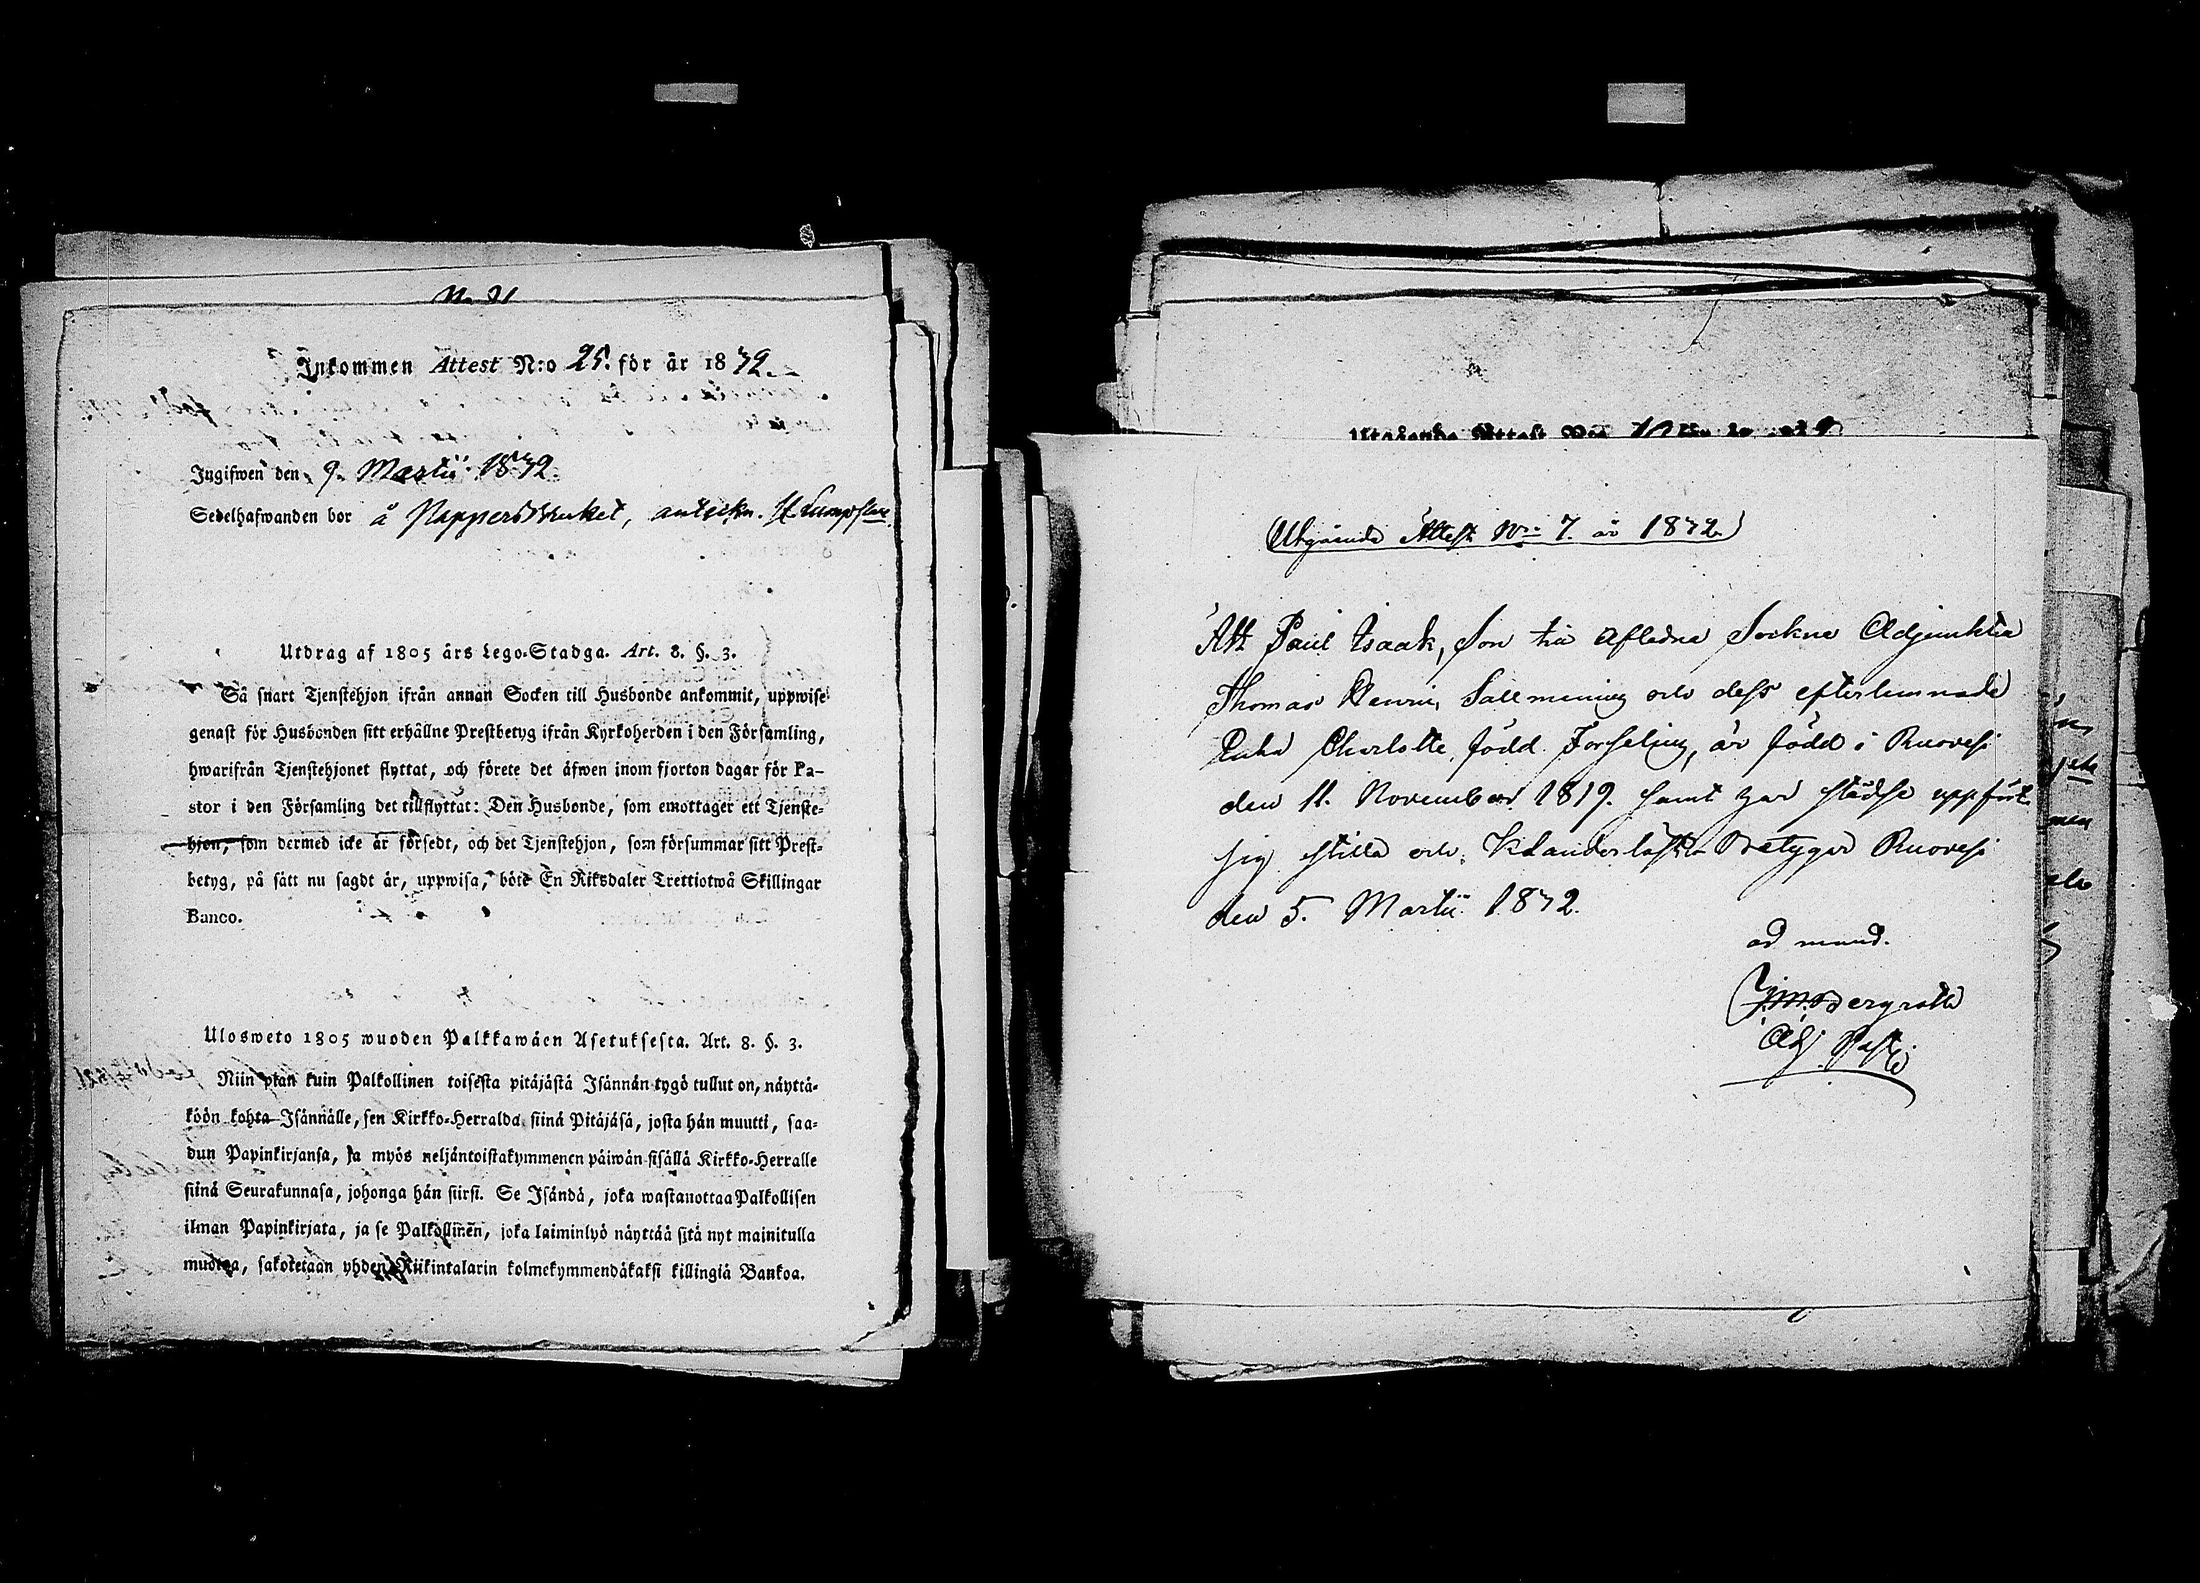 Inkommen Attest N:o 25. för år 1832.
Ingifwen den 9. Martii 1832.
Sedelhafwanden bor å Pappersbruket, anteckn.
Utdrag af 1805 års Lego-Stadga. Art. 8. §. 3.
Så snart Tjenstehjon ifrån annan Socken till Husbonde ankommit, uppwise
genast för Husbonden sitt erhållne Prestbetyg ifrån Kyrkoherden i den Församling,
hwarifrån Tjenstehjonet flyttat, och förete det äfwen inom fjorton dagar för Pa-
stor i den Församling det tillflyttat: Den Husbonde, som emottager ett Tjenste-
hjon, som dermed icke är försedt, och det Tjenstehjon, som försummar sitt Prest-
betyg, på sätt nu sagdt är, uppwisa, böte En Riksdaler Trettiotwå Skillingar
Banco.
Ulosweto 1805 wuoden Palkkawäen Asetuksesta. Art. 8. §. 3.
Niin pian kuin Palkollinen toisesta pitäjästä Isännän tygö tullut on, näyttä-
köön kohta Isännälle, sen Kirkko-Herralda siinä Pitäjäsä, josta hän muutti, saa-
dun Papinkirjansa, ja myös neljäntoistakymmenen päiwän sisällä Kirkko-Herralle
siinä Seurakunnasa, johonga hän siirsi. Se Isändä, joka wastanottaa Palkollisen
ilman Papinkirjata, ja se Palkollinen, joka laiminlyö näyttää sitä nyt mainitulla
mudtoa, sakotetaan yhden Riikintalarin kolmekymmendäkaksi killingiä Bankoa.
Utgående Attest No 10
Utgående Attest No 7. år 1832.
Att Paul Isaak, Son til afledne Sockne Adjunkten
Thomas Henric Sallmening och dess efterlemnade
Enka Charlotte, född Forseling, är född i Ruovesi
den 11. November 1819. samt har städse uppfört
sig stilla och Klanderlöst Betygar Ruovesi
den 5. Martii 1832.
ad mand.
Bergroth
Adj. Past.